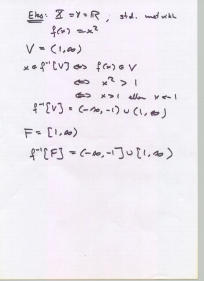 Eks: X = Y = R, std. metrikk
f(x) = x²
V = (1, ∞)
x ∈ f⁻¹[V] ⇔ f(x) ∈ V
⇔ x² > 1
⇔ x > 1 eller x < -1
f⁻¹[V] = (-∞, -1) ∪ (1, ∞)
F = [1, ∞)
f⁻¹[F] = (-∞, -1] ∪ [1, ∞)